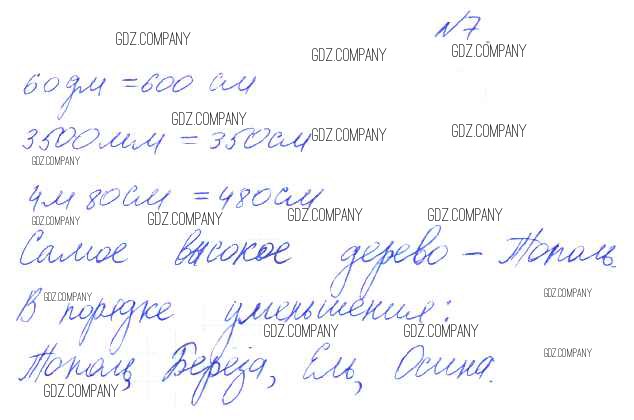 №7
GDZ.COMPANY
GDZ.COMPANY GDZ.COMPANY
60дм = 600 см
GDZ.COMPANY
3500мм = 350см
GDZ.COMPANY GDZ.COMPANY
GDZ.COMPANY
4м 80см = 480см
GDZ.COMPANY GDZ.COMPANY GDZ.COMPANY GDZ.COMPANY
Самое высокое дерево – Тополь.
GDZ.COMPANY GDZ.COMPANY
В порядке уменьшения:
GDZ.COMPANY GDZ.COMPANY
GDZ.COMPANY
Тополь, Берёза, Ель, Осина.
GDZ.COMPANY